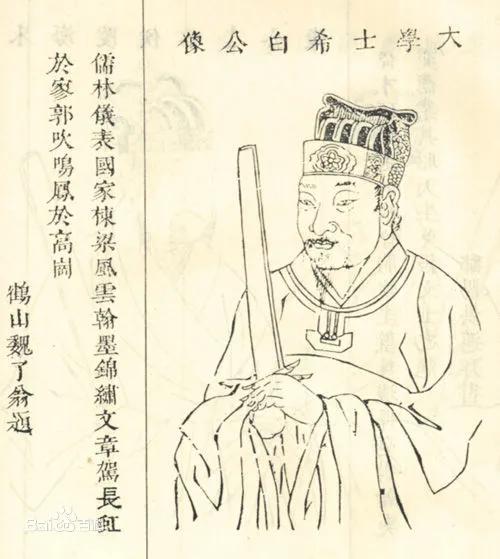 大學士希白公像
儒林儀表國家棟梁風雲翰墨錦繡文章駕長虹
於寥郭吹鳴鳳於高崗
鶴山魏了翁題
Bai百科